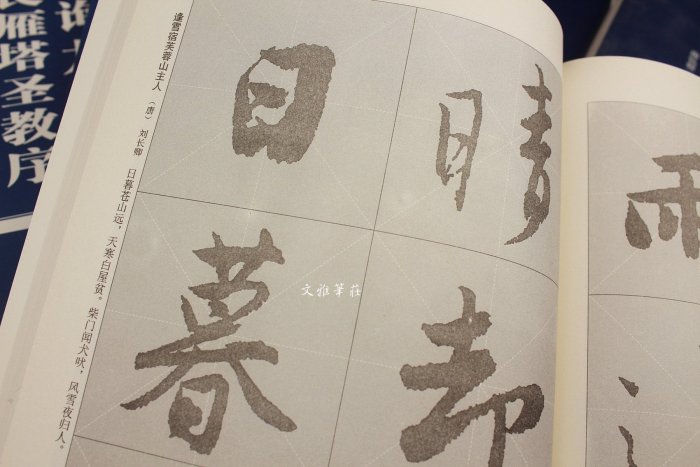 雁塔圣教序
逢雪宿芙蓉山主人（唐）刘长卿 日暮苍山远，天寒白屋贫。柴门闻犬吠，风雪夜归人。
日暮
晴却
雨
文雅筆莊